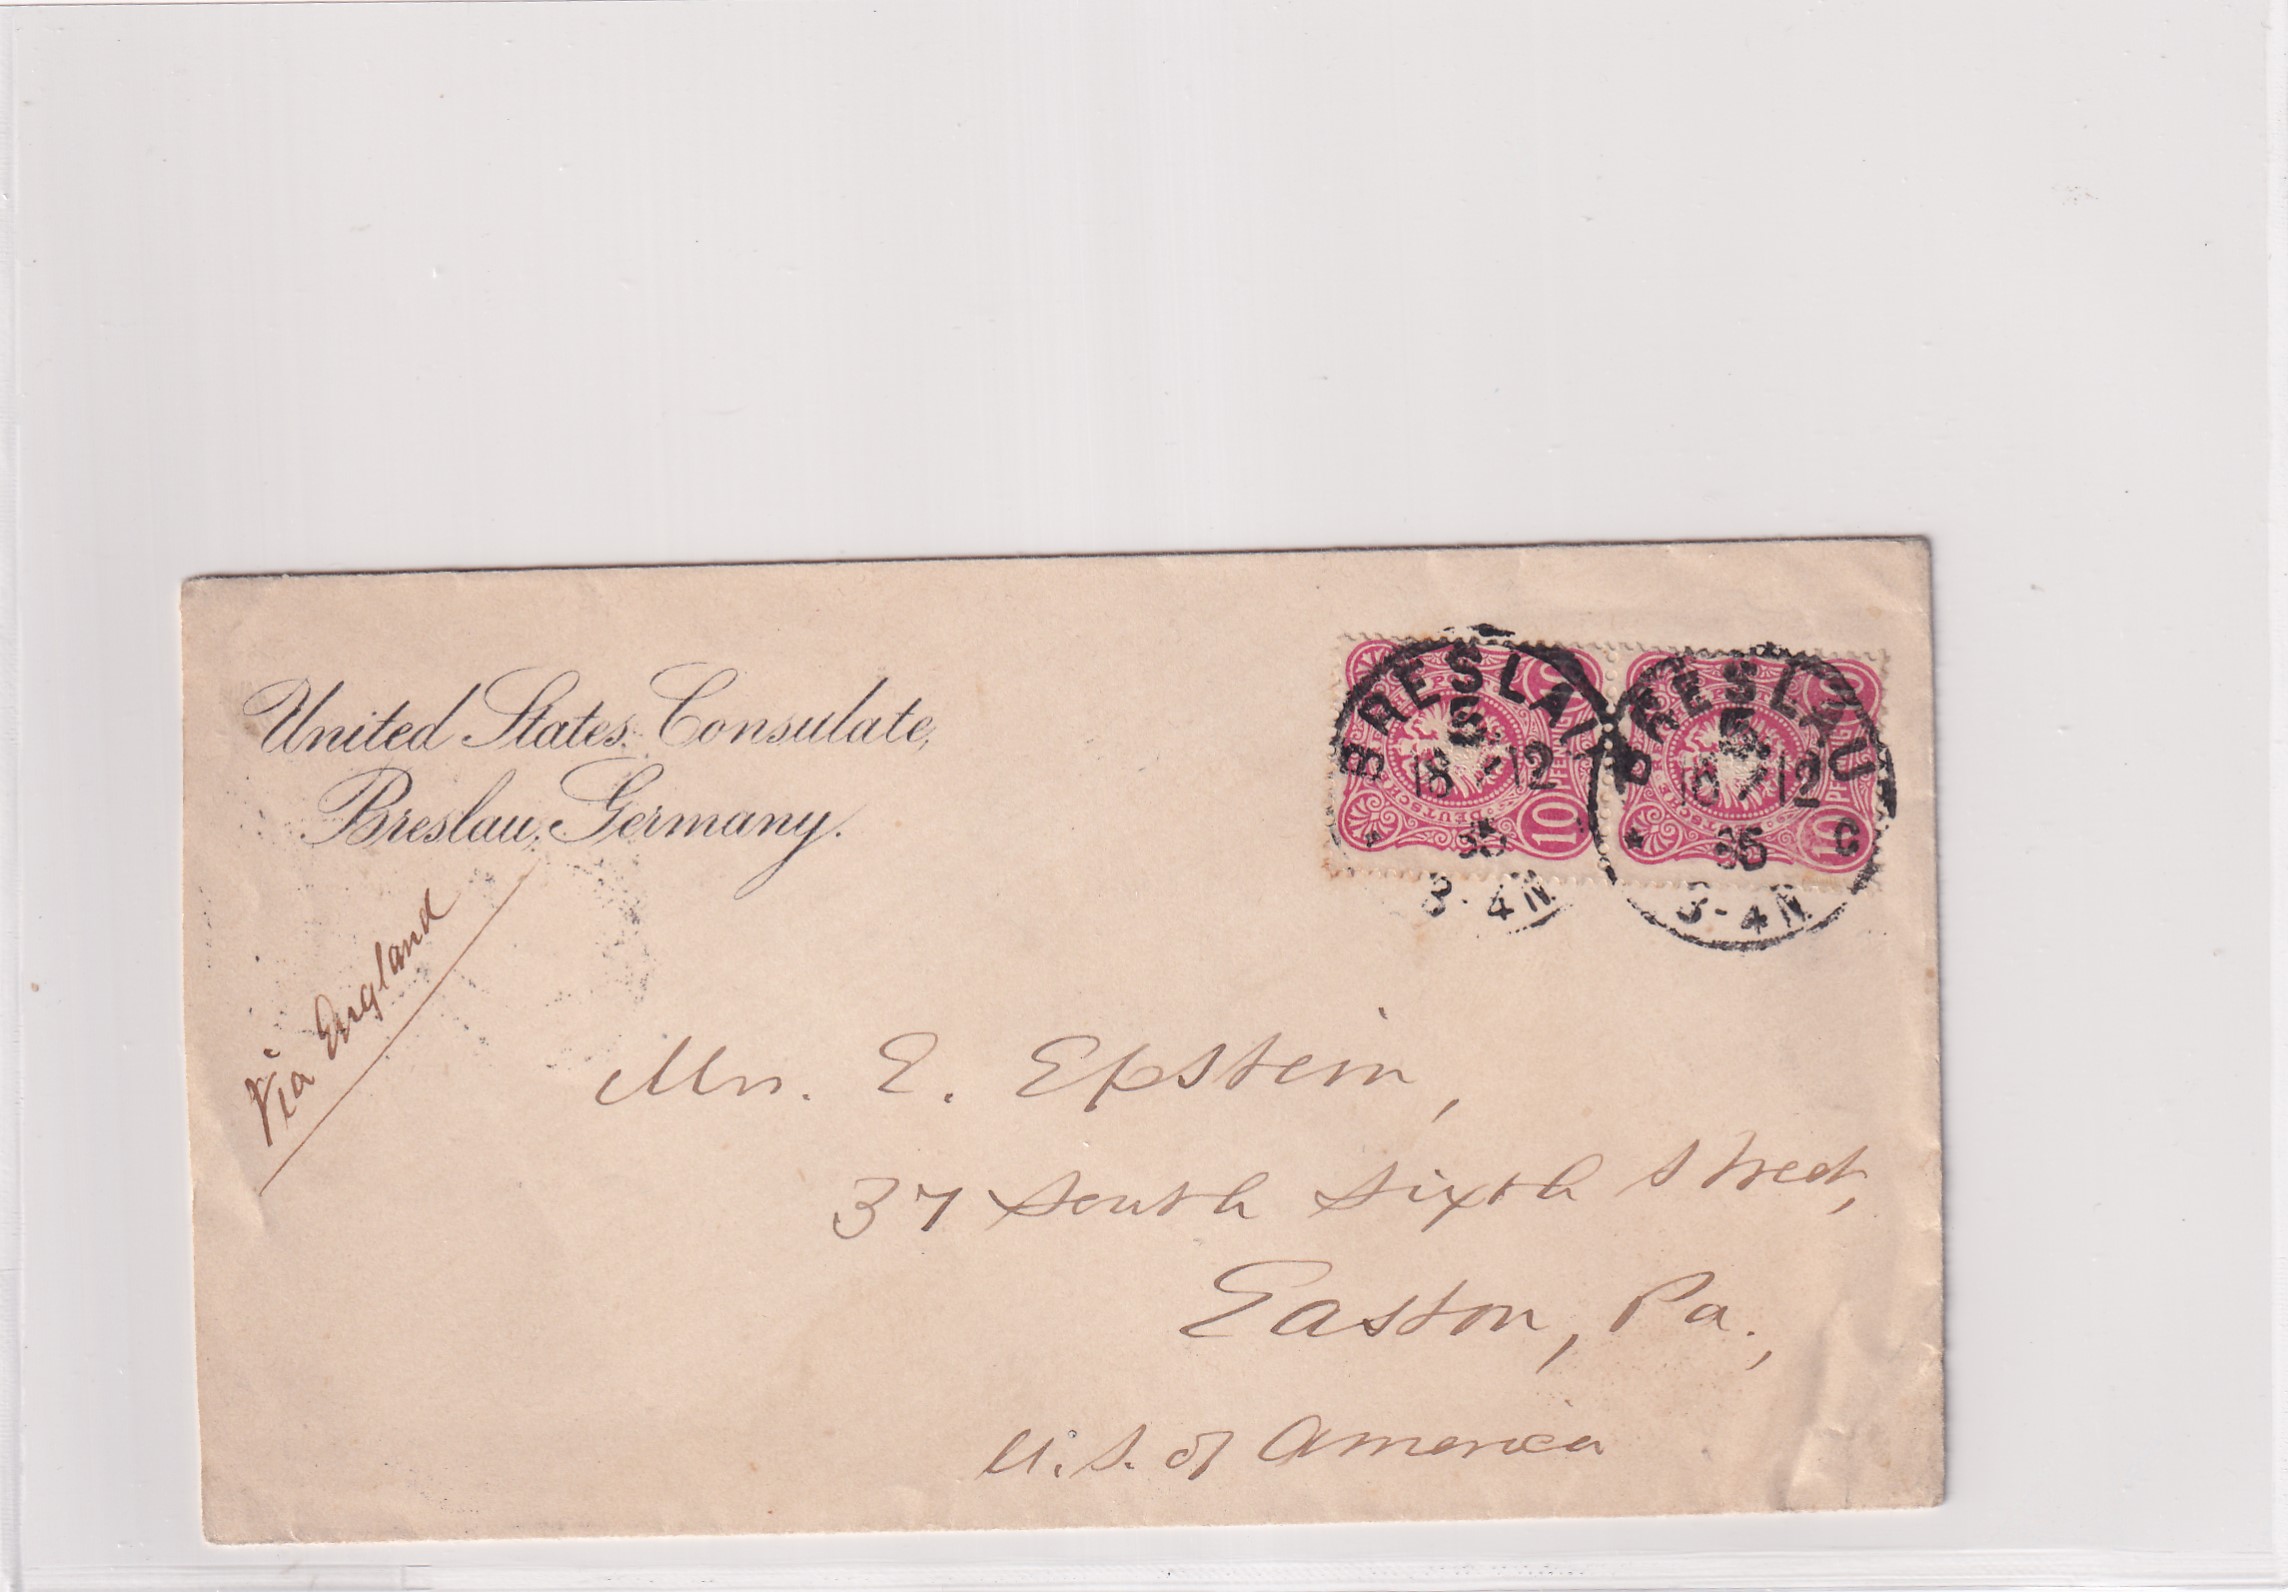 United States Consulate,
Breslau, Germany.
Via England
BRESLAU
5
18 12
85
3-4N
BRESLAU
5
18 12
85
* C
3-4N
10
PFENNIG
DEUTSCHE
10
PFENNIG
DEUTSCHE
Mrs. E. Epstein,
37 South Sixth Street,
Easton, Pa.,
U.S. of America